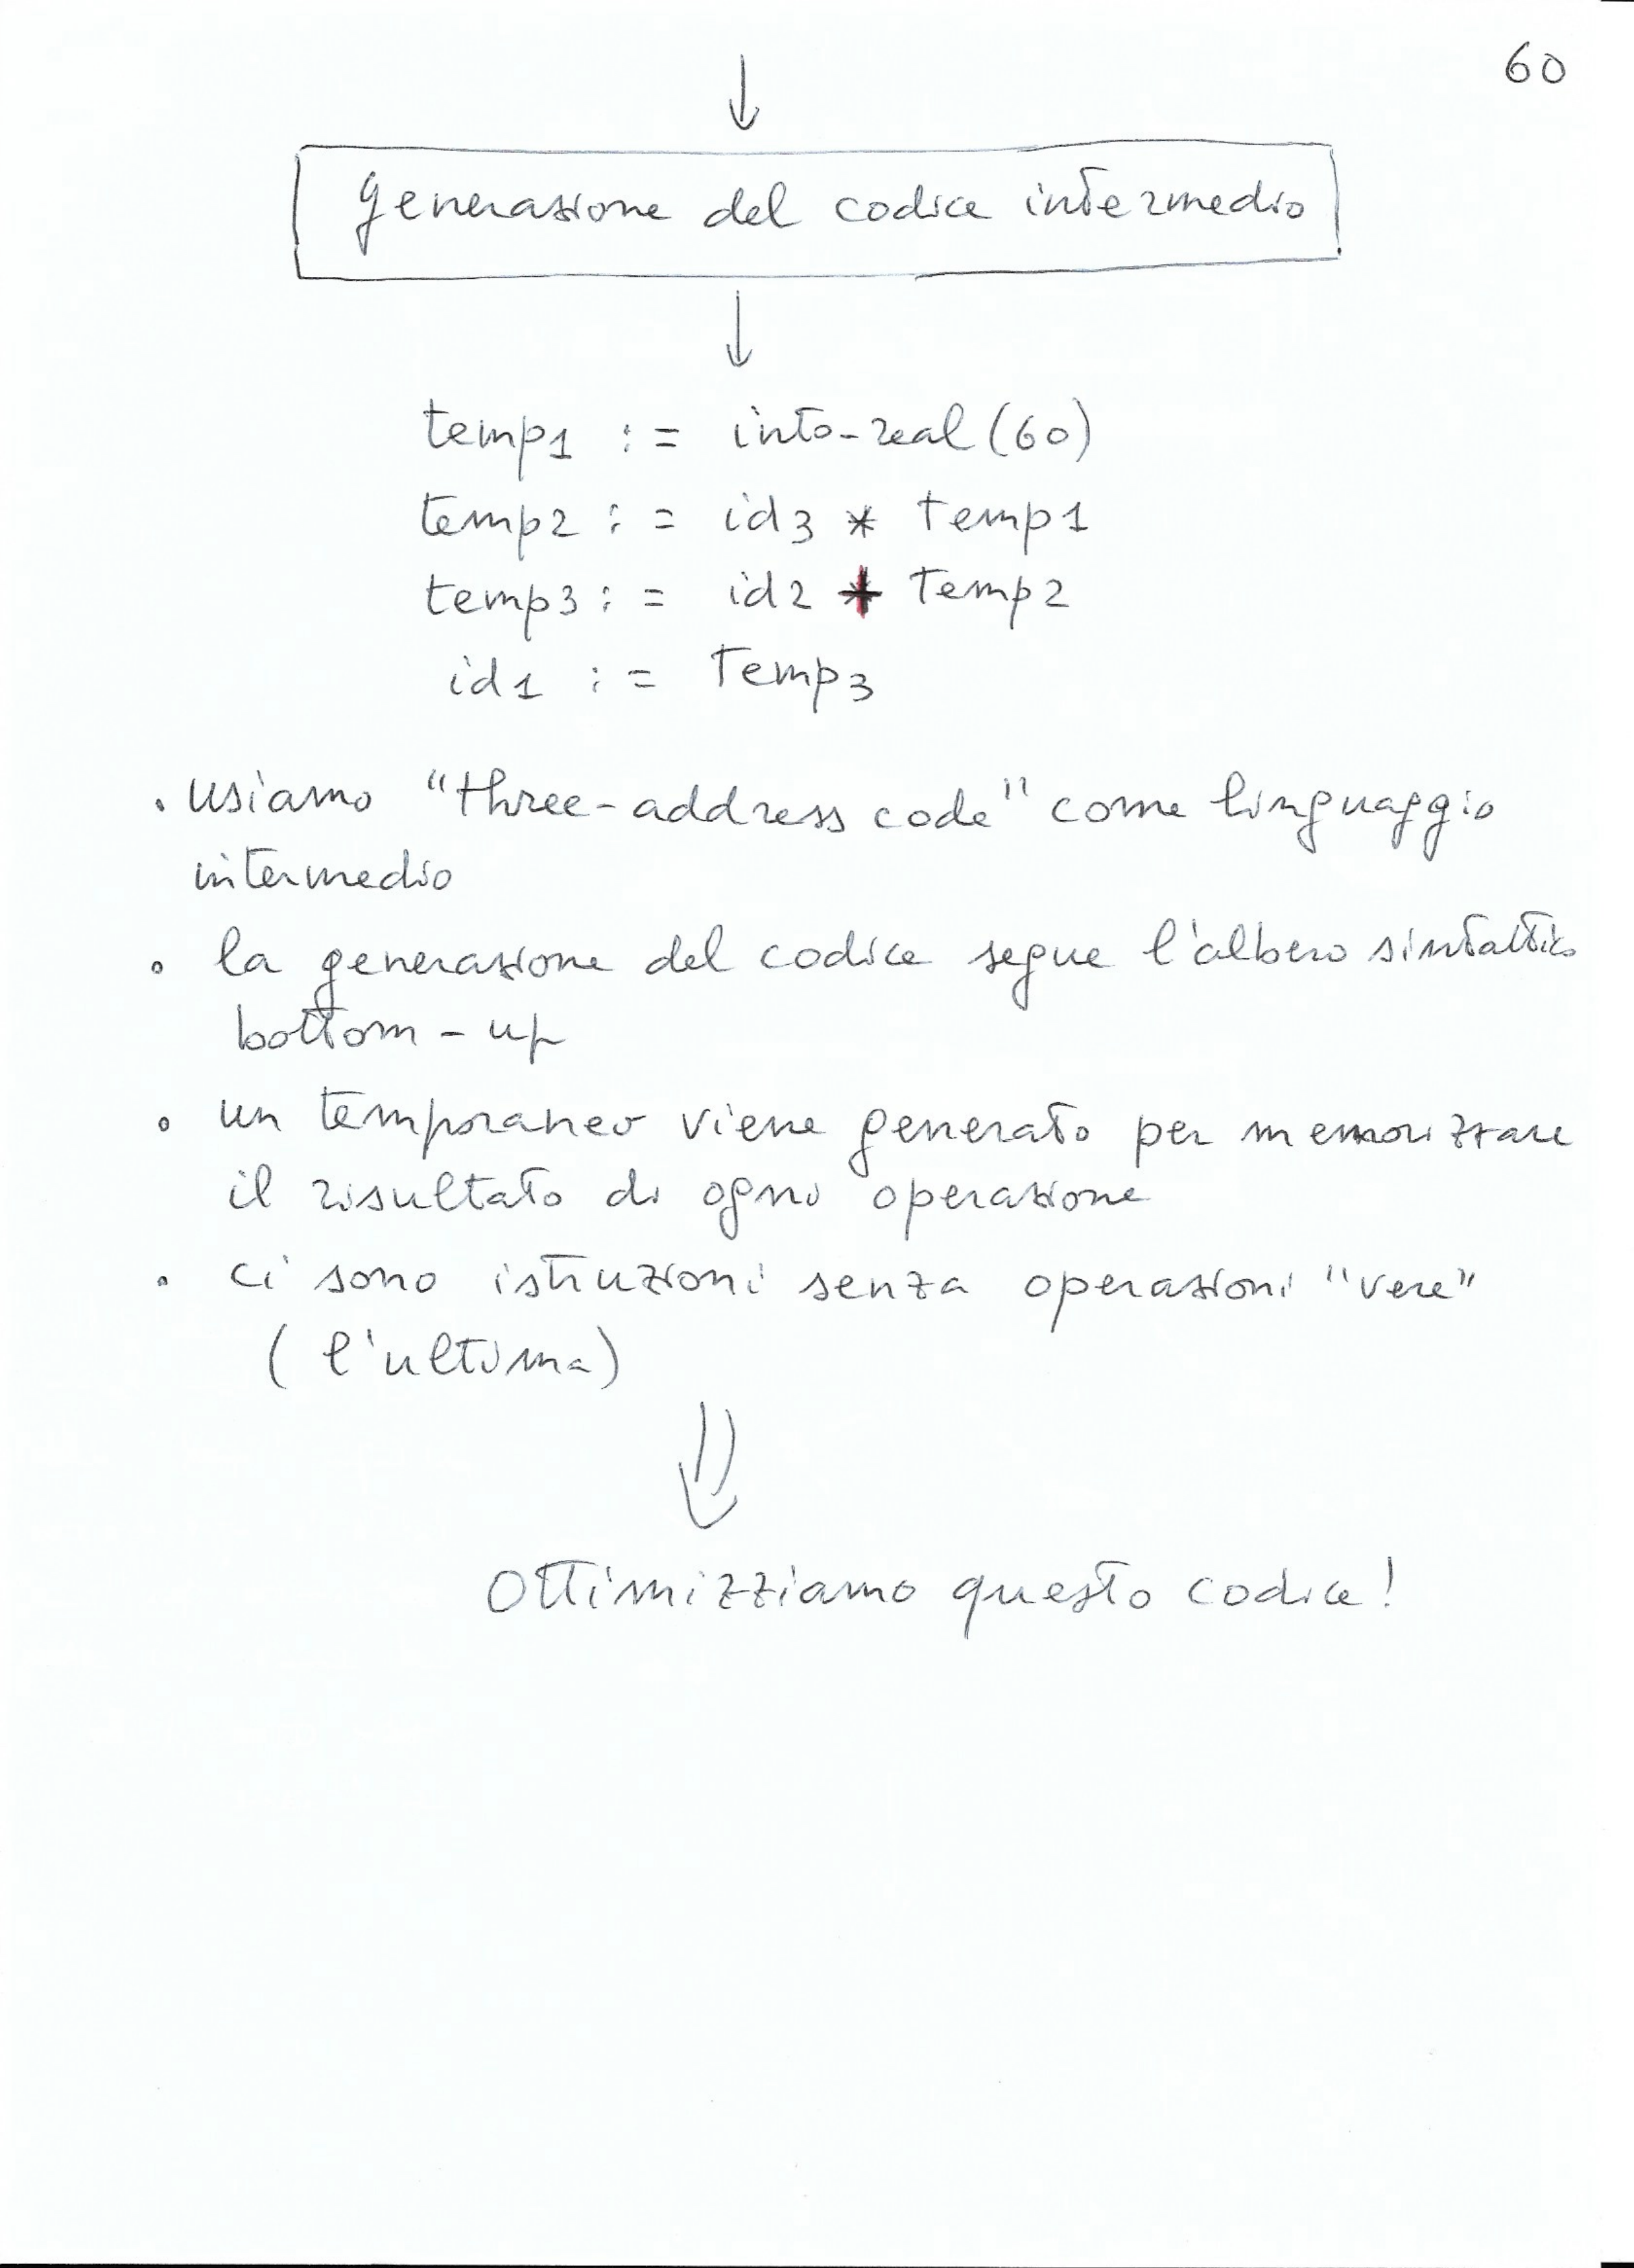 60
generazione del codice intermedio
temp1 := into-real(60)
temp2 := id3 * temp1
temp3 := id2 + temp2
id1 := temp3
• usiamo "three-address code" come linguaggio
intermedio
• la generazione del codice segue l'albero sintattico
bottom-up
• un temporaneo viene generato per memorizzare
il risultato di ogni operazione
• ci sono istruzioni senza operazioni "vere"
(l'ultima)
Ottimizziamo questo codice!